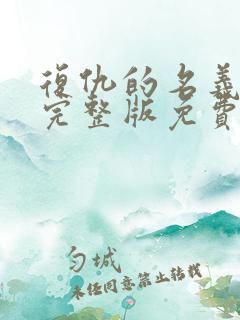 復仇的名義
完整版免費
勻城
未经同意禁止转载